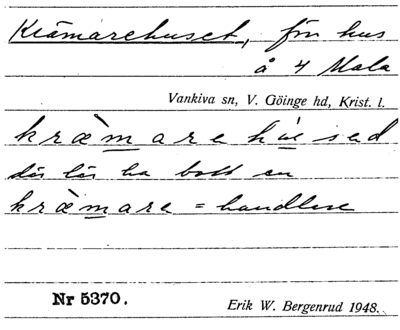 Krämarehuset, förr hus
å 4 Mala
Vankiva sn, V. Göinge hd, Krist. l.
kræmare
där lär ha bott en
kræmare = handlare
Nr 5370.
Erik W. Bergenrud 1948.